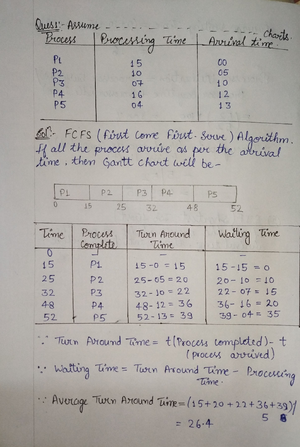 Ques1:- Assume
Charts.
Process Processing Time Arrival time
P1 15 00
P2 10 05
P3 07 10
P4 16 12
P5 04 13
Sol:- FCFS (First Come First-Serve) Algorithm.
If all the process arrive as per the arrival
time, then Gantt chart will be-
P1 P2 P3 P4 P5
0 15 25 32 48 52
Time Process Complete Turn Around Time Waiting Time
0 - - -
15 P1 15-0 = 15 15-15 = 0
25 P2 25-05 = 20 20-10 = 10
32 P3 32-10 = 22 22-07 = 15
48 P4 48-12 = 36 36-16 = 20
52 P5 52-13 = 39 39-04 = 35
∵ Turn Around Time = t(Process completed) - t
(process arrived)
∵ Waiting Time = Turn Around Time - Processing
Time.
∵ Average Turn Around Time = (15+20+22+36+39)/
5
= 26.4